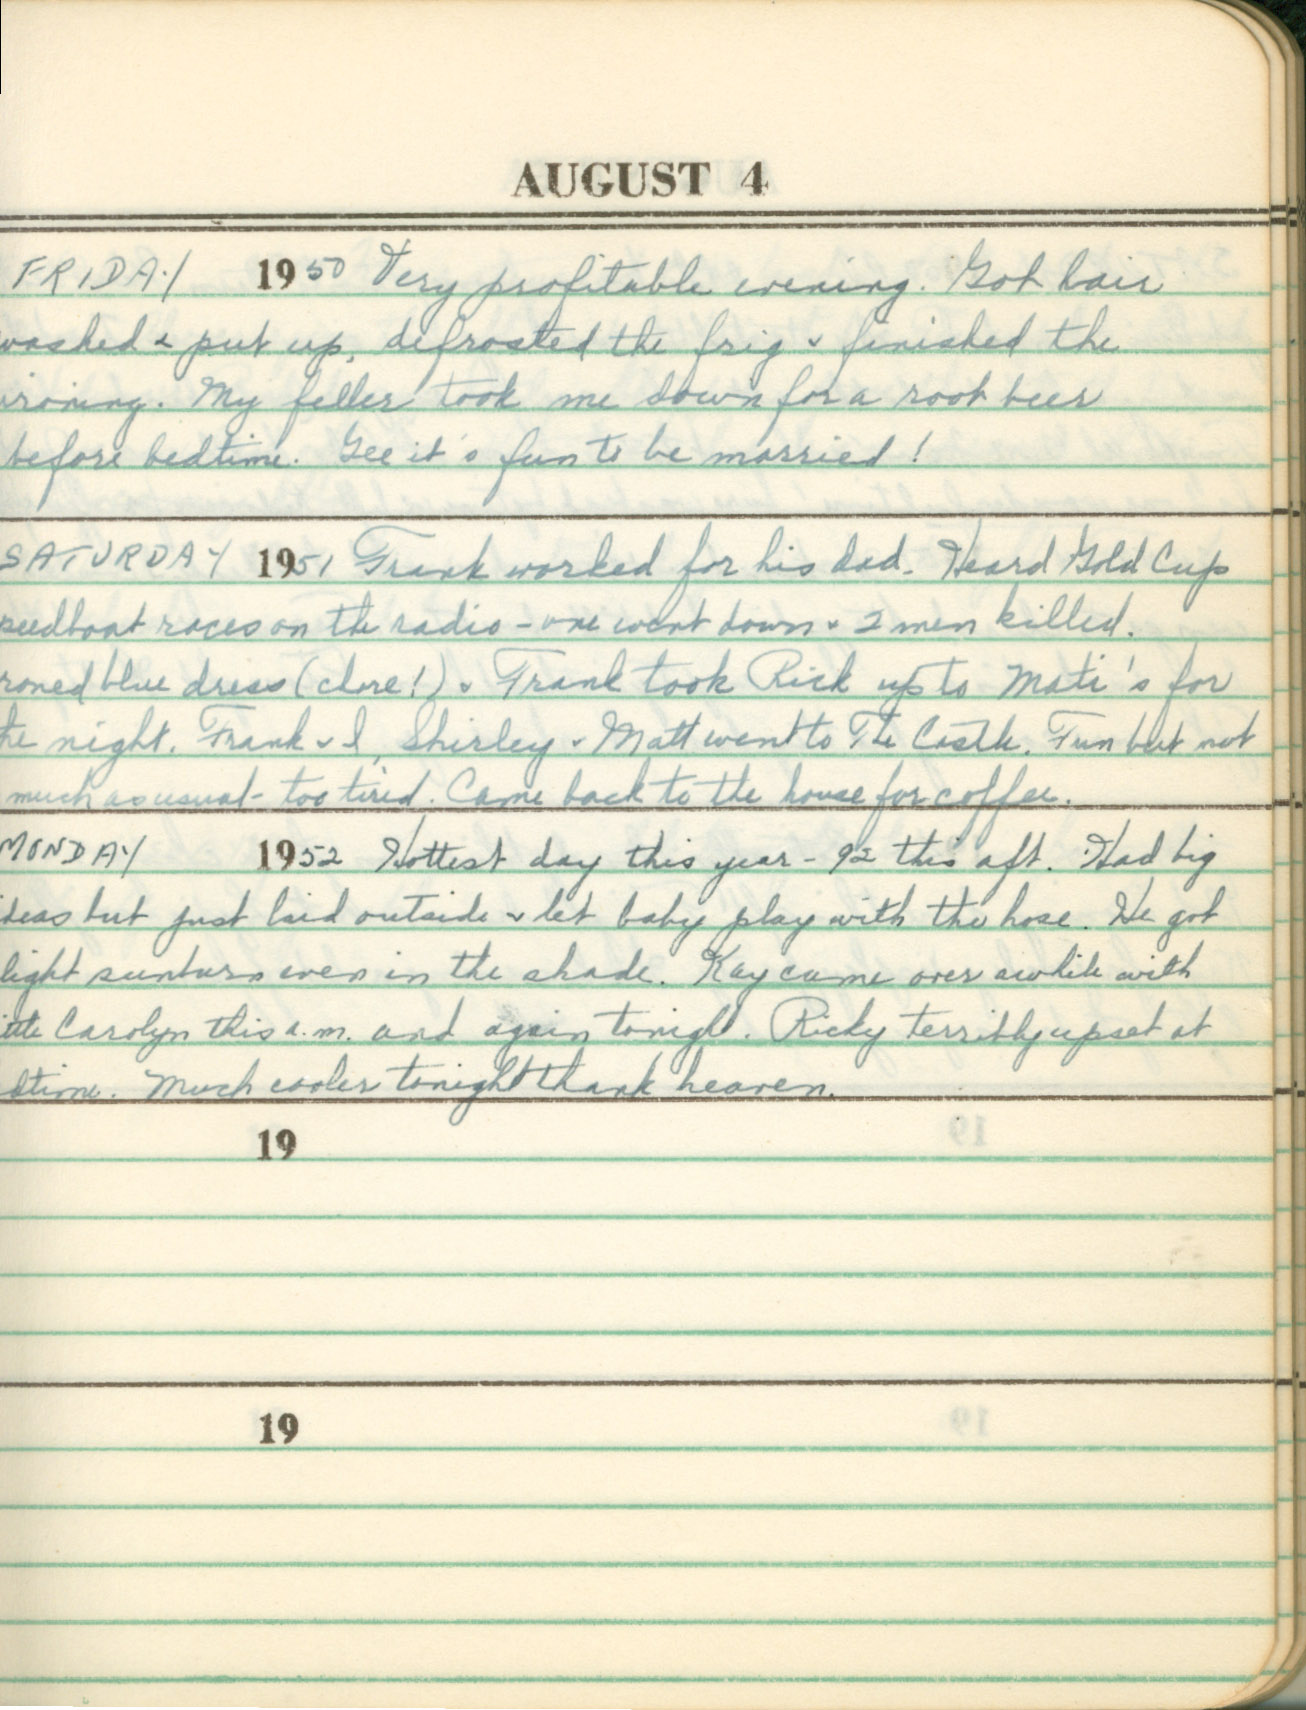 AUGUST 4
FRIDAY 1950 Very profitable evening. Got hair
washed & put up, defrosted the frig & finished the
ironing. My feller took me down for a root beer
before bedtime. Gee it's fun to be married!
SATURDAY 1951 Frank worked for his dad. Heard Gold Cup
peedboat races on the radio - one went down & 2 men killed.
roned blue dress (chore!) & Frank took Rick up to Mati's for
he night. Frank & I, Shirley & Matt went to The Castle. Fun but not
much as usual - too tired. Came back to the house for coffee.
MONDAY 1952 Hottest day this year - 92 this aft. Had big
deas but just laid outside & let baby play with the hose. He got
light sunburn even in the shade. Kay came over awhile with
ittle Carolyn this a.m. and again tonight. Ricky terribly upset at
dtime. Much cooler tonight thank heaven.
19
19